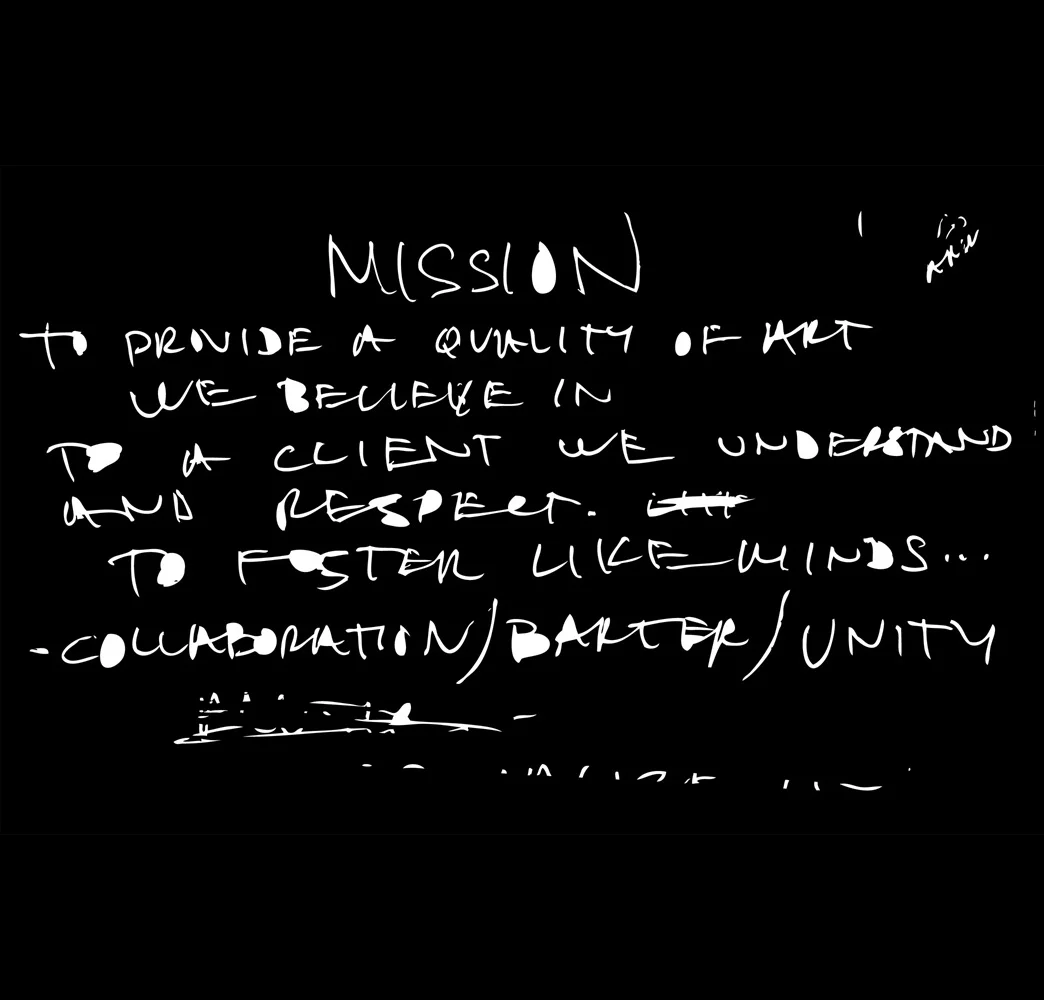 MISSION
TO PROVIDE A QUALITY OF ART
WE BELIEVE IN
TO A CLIENT WE UNDERSTAND
AND RESPECT.
TO FOSTER LIKE MINDS...
- COLLABORATION/BARTER/UNITY